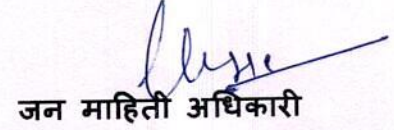 जन माहिती अधिकारी